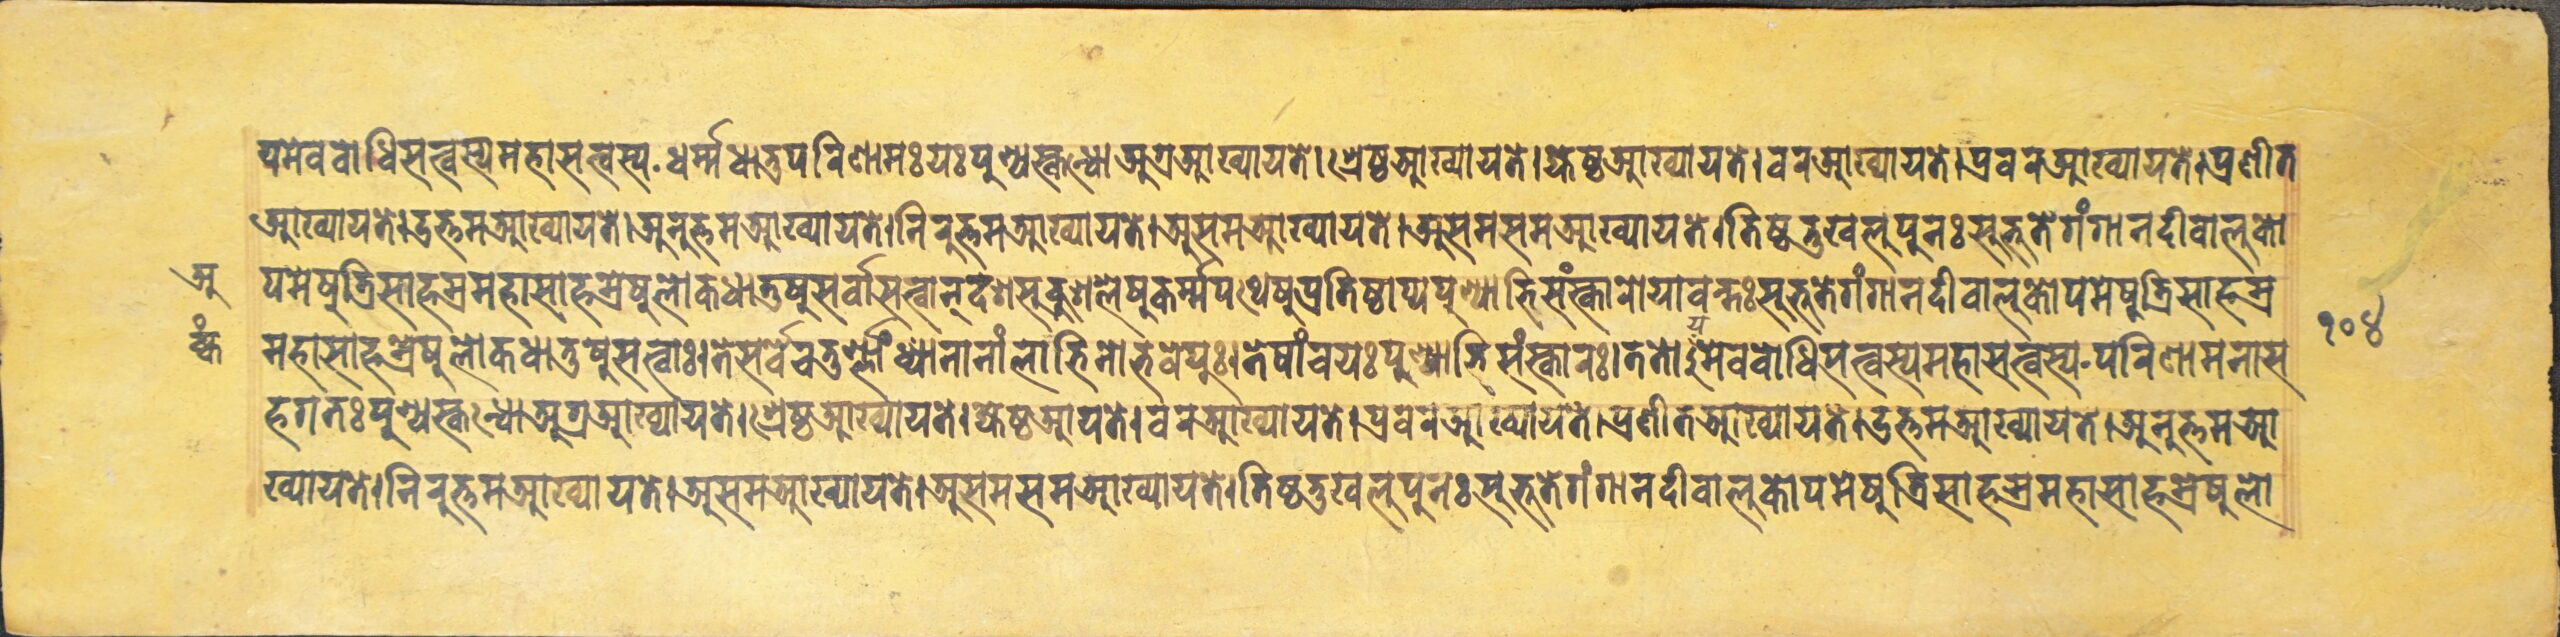 यमेवबोधिसत्त्वस्यमहासत्त्वस्य.धर्म्मधातुपरिणामःयःपुण्यस्कन्धोअग्रआख्यायते।श्रेष्ठआख्यायते।ज्येष्ठआख्यायते।वरआख्यायते।प्रवरआख्यायते।प्रणीत
आख्यायते।उत्तमआख्यायते।अनुत्तमआख्यायते।निरुत्तमआख्यायते।असमआख्यायते।असमसमआख्यायते।तिष्ठतुखलुपुनःसुभूतेगंगानदीवालुको
पमेषुत्रिसाहस्रमहासाहस्रेषुलोकधातुषुसर्वासत्त्वान्दशसुकुशलेषुकर्म्मपथेषुप्रतिष्ठाप्यपुण्याभिसंस्कारोयावन्तःसुभूतेगंगानदीवालुकोपमेषुत्रिसाहस्र
महासाहस्रेषुलोकधातुषुसत्त्वाः।तेसर्वेचतुर्ण्णांध्यानानांलाभिनोभवेयुः।तेषांचयःपुण्याभिसंस्कारः।ततोऽयमेवबोधिसत्त्वस्यमहासत्त्वस्य.परिणामनास
हगतःपुण्यस्कन्धोअग्रआख्यायते।श्रेष्ठआख्यायते।ज्येष्ठआयते।वरआख्यायते।प्रवरआख्यायते।प्रणीतआख्यायते।उत्तमआख्यायते।अनुत्तमआ
ख्यायते।निरुत्तमआख्यायते।असमआख्यायते।असमसमआख्यायते।तिष्ठतुखलुपुनःसुभूतेगंगानदीवालुकोपमेषुत्रिसाहस्रमहासाहस्रेषुलो
अ
१०४